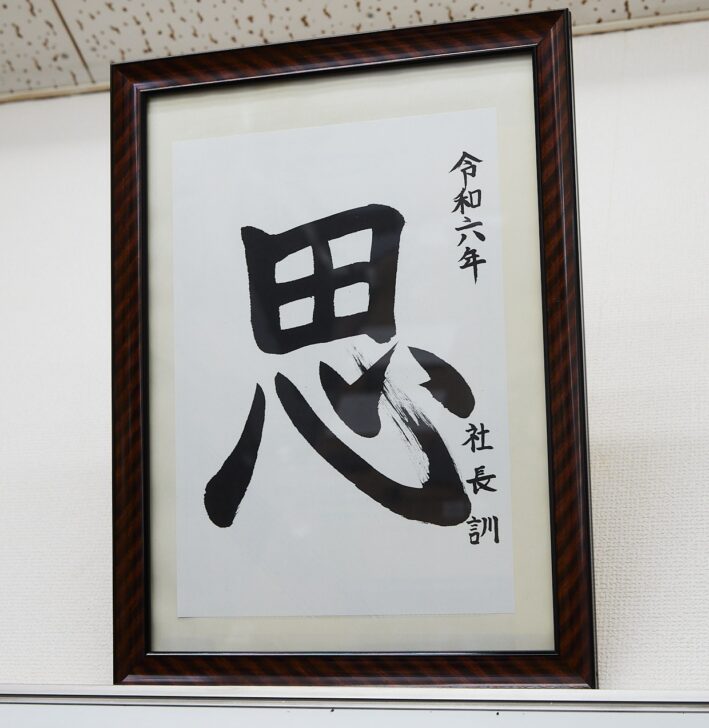 令和六年
思
社長訓